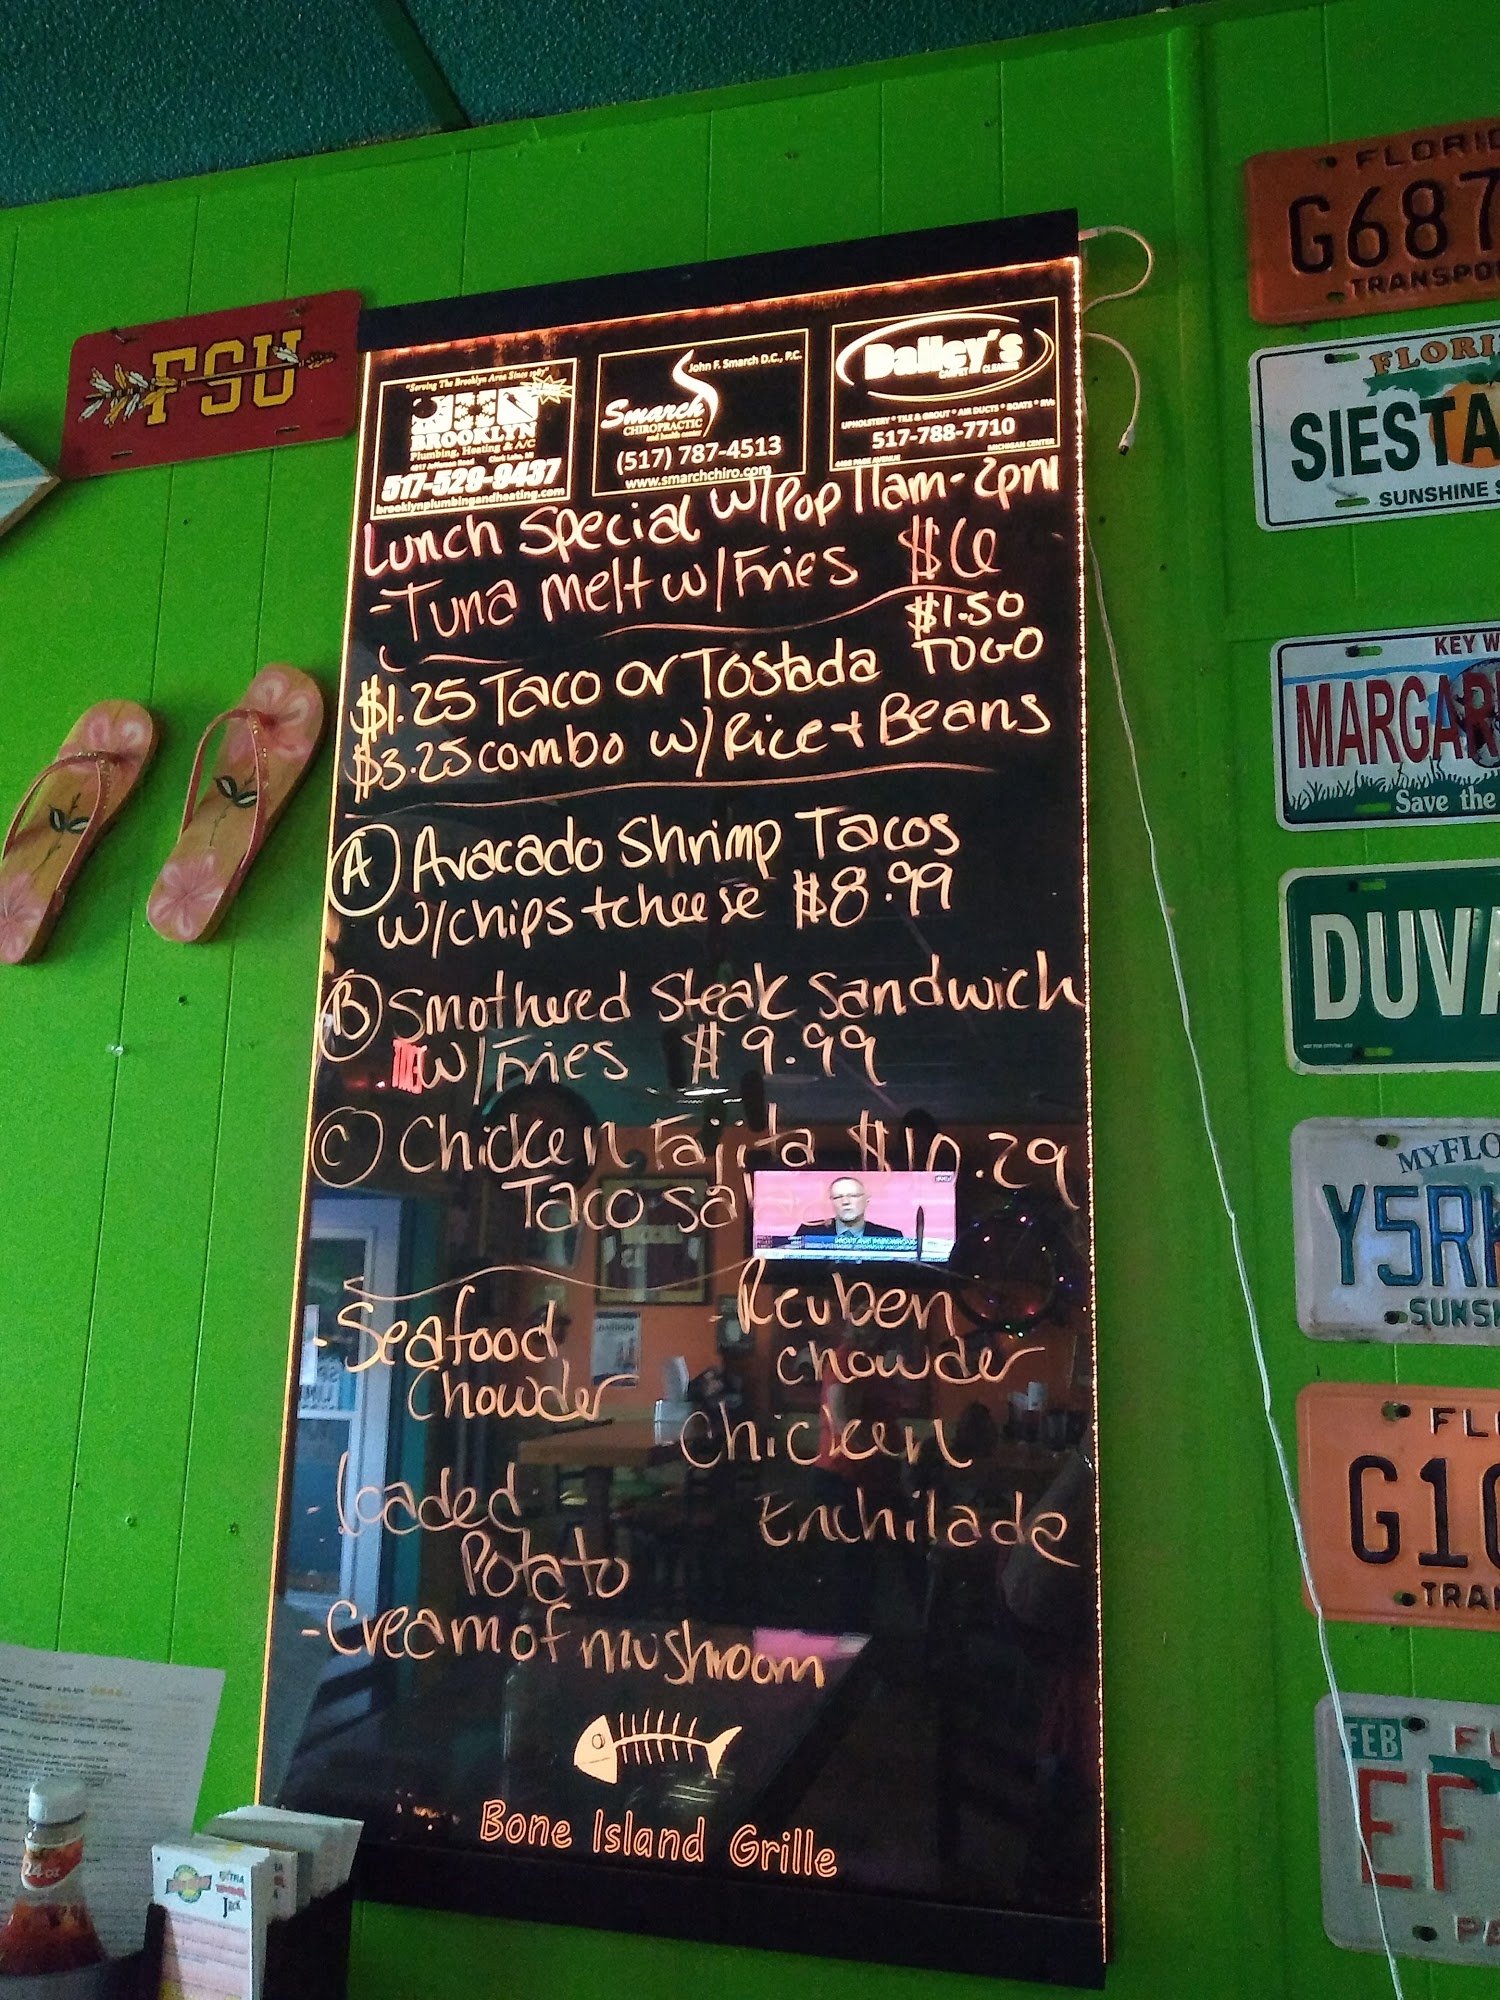 "Serving The Brooklyn Area Since 1987"
BROOKLYN
Plumbing, Heating & A/C
517-529-9437
brooklynplumbingandheating.com
John F. Smarch D.C., P.C.
Smarch
CHIROPRACTIC
and health center
(517) 787-4513
www.smarchchiro.com
Dailey's
CARPET CLEANING
UPHOLSTERY * TILE & GROUT * AIR DUCTS * BOATS * RVs
517-788-7710
MICHIGAN CENTER
Lunch Special w/pop 11am-2pm
-Tuna melt w/Fries $6
$1.50
$1.25 Taco or Tostada TOGO
$3.25 combo w/Rice + Beans
A Avacado Shrimp Tacos
w/chips + cheese $8.99
B Smothered Steak Sandwich
w/Fries $9.99
C Chicken Fajita $10.29
Taco sa
-Seafood
Chowder
-Loaded
Potato
-Cream of mushroom
-Reuben
chowder
Chicken
Enchilade
Bone Island Grille
FSU
FLORID
G687
TRANSPO
FLORI
SIESTA
SUNSHINE S
KEY W
MARGAR
Save the
DUVA
MYFLO
Y5R
SUNSH
FL
G10
TRAN
FEB
FL
EF
PA
24 oz
EXTRA
Jack